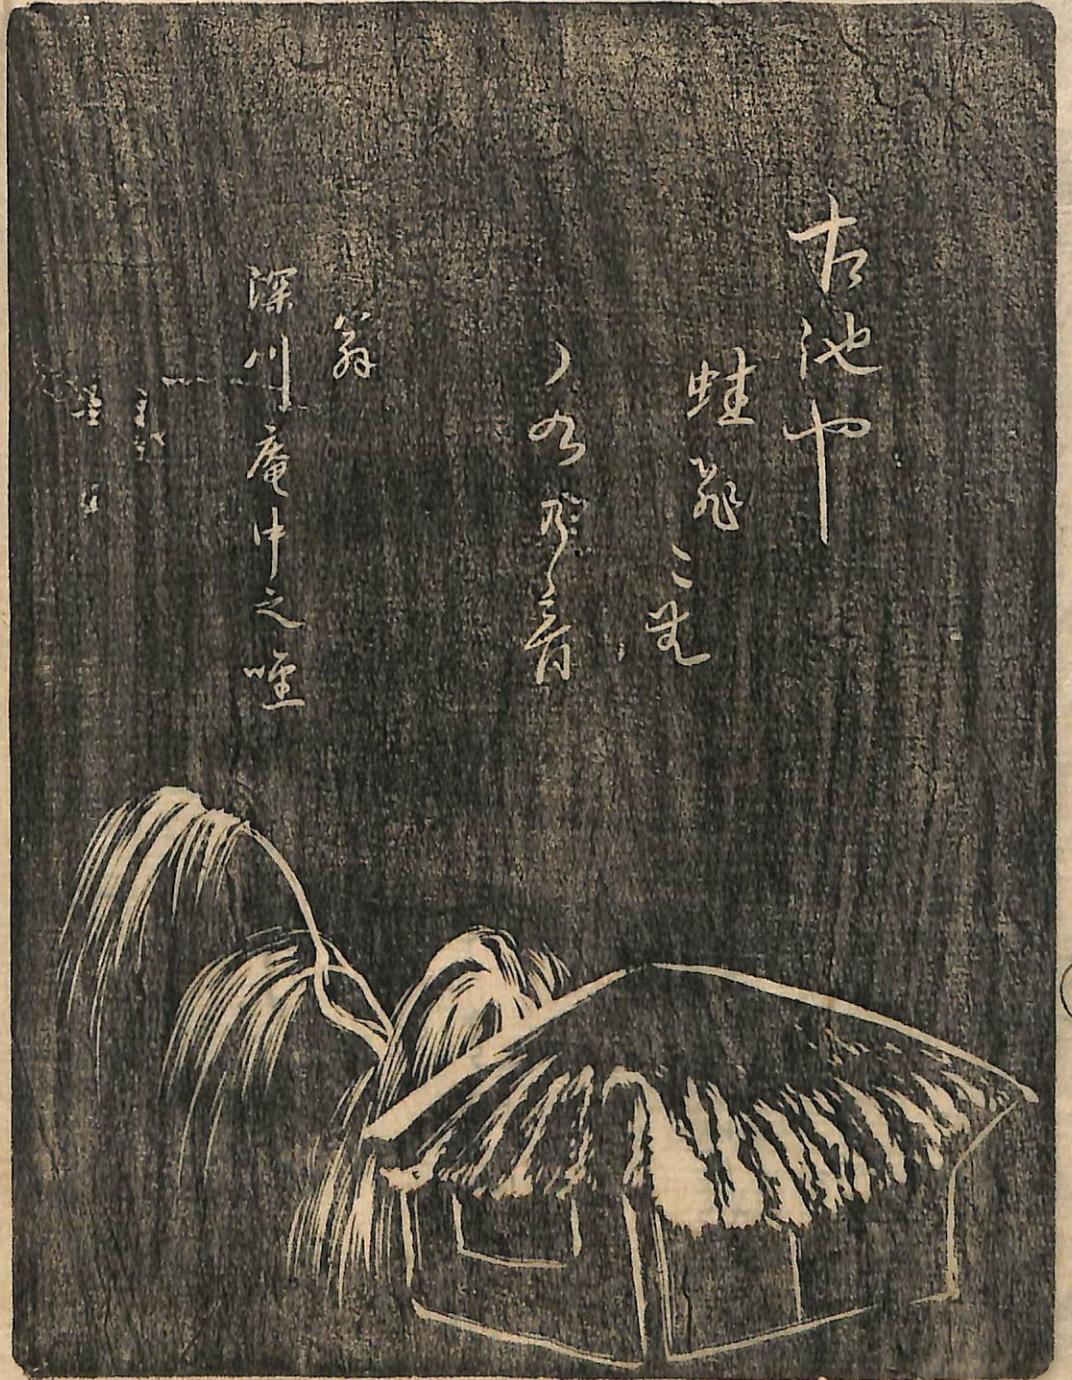 古池や
蛙飛
こ无
水乃音
翁
深川庵中之唫